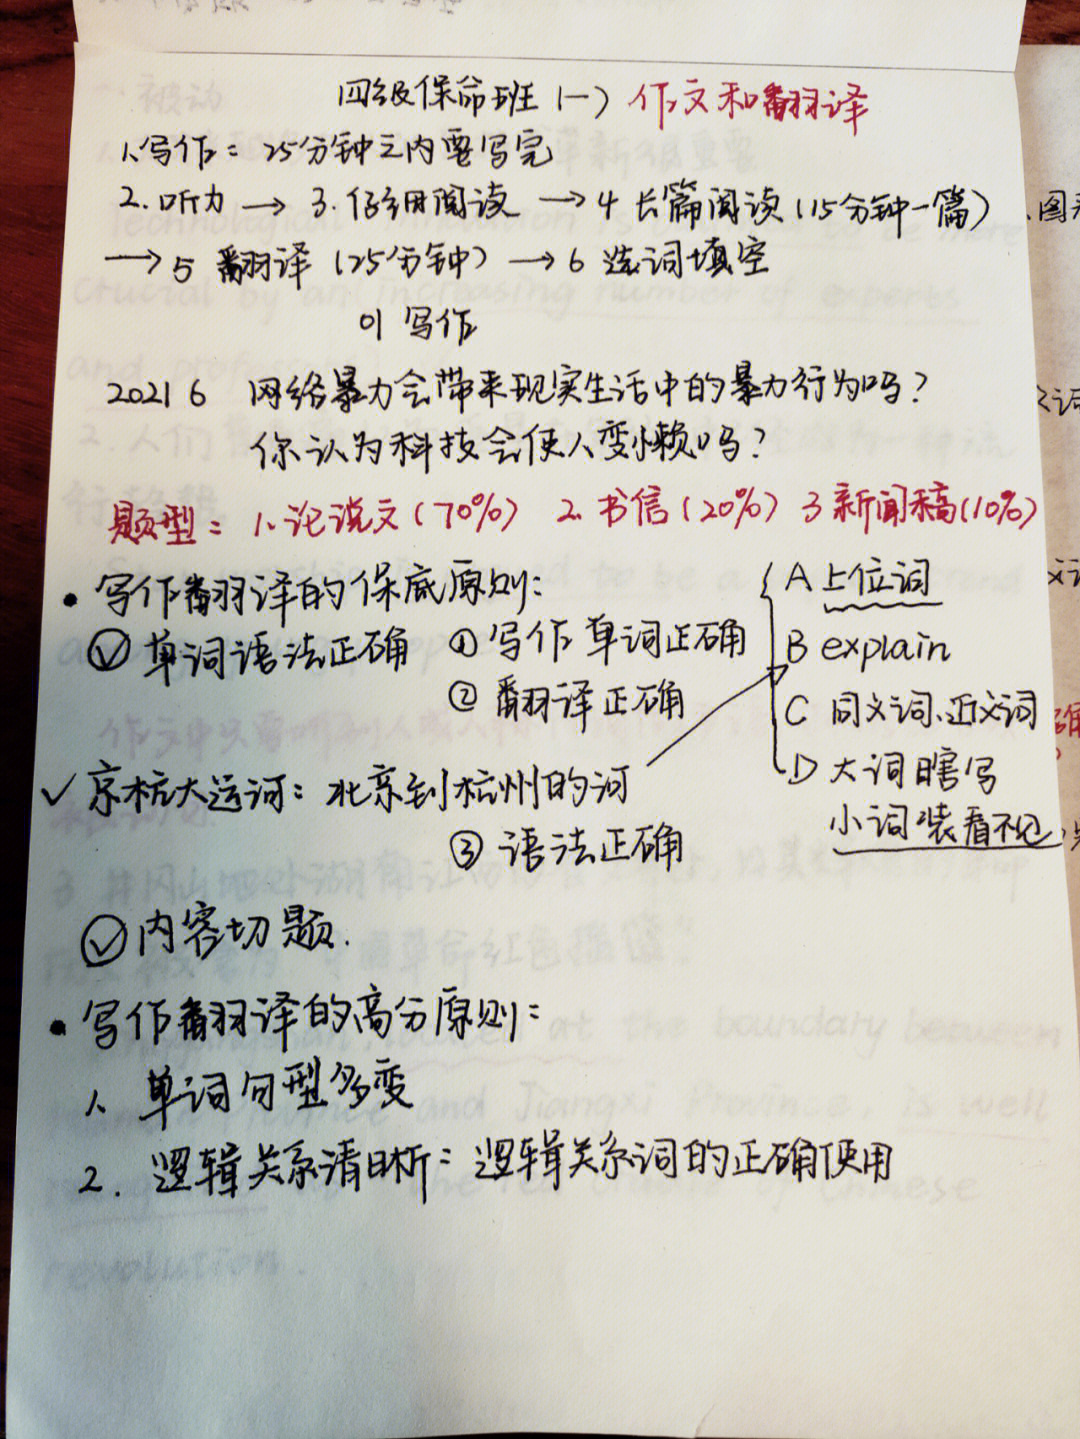 四级保命班(一) 作文和翻译
1.写作：25分钟之内要写完
2.听力 → 3.仔细阅读 → 4 长篇阅读(15分钟一篇)
→ 5 翻译(25分钟) → 6 选词填空
01 写作
2021 6 网络暴力会带来现实生活中的暴力行为吗?
你认为科技会使人变懒吗?
题型: 1.论说文(70%) 2.书信(20%) 3 新闻稿(10%)
• 写作翻译的保底原则:
A 上位词
✓ 单词语法正确 ① 写作 单词正确
B explain
② 翻译正确
C 同义词、近义词
D 大词瞎写
✓ 京杭大运河: 北京到杭州的河
小词装看不见
③ 语法正确
✓ 内容切题.
• 写作翻译的高分原则:
1. 单词句型多变
2. 逻辑关系清晰: 逻辑关系词的正确使用